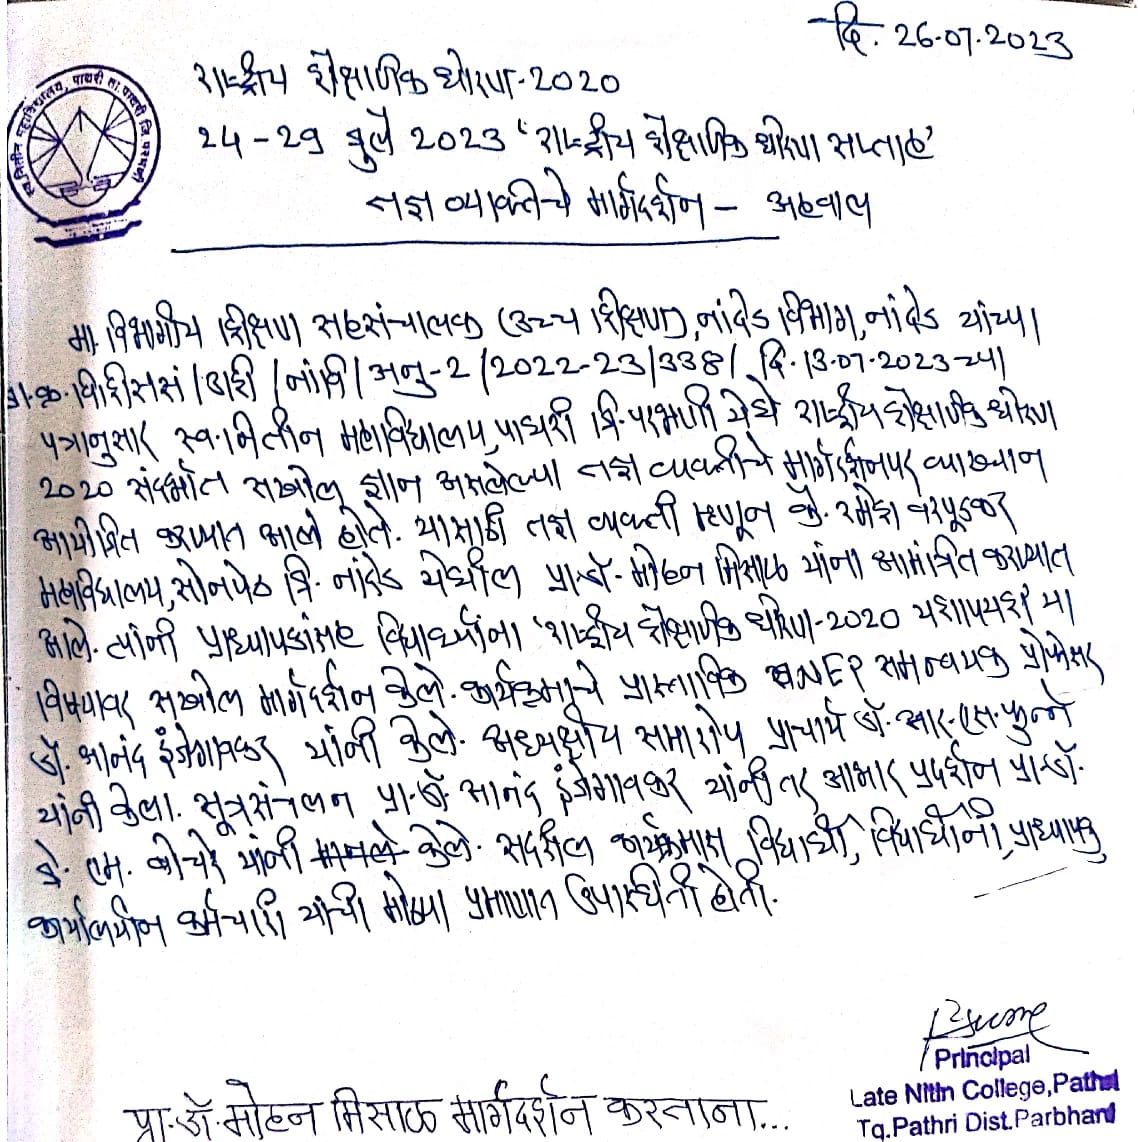 दि. 26.07.2023
राष्ट्रीय शैक्षणिक धोरण-2020
24-29 जुलै 2023 'राष्ट्रीय शैक्षणिक धोरण सप्ताह'
तज्ञ व्यक्तिचे मार्गदर्शन - अहवाल
स्व. नितीन महाविद्यालय, पाथरी ता. पाथरी जि. परभणी
मा. विभागीय शिक्षण सहसंचालक (उच्च शिक्षण), नांदेड विभाग, नांदेड यांच्या
जा.क्र. विशिससं/उशि/नांवि/अनु-2/2022-23/338/ दि. 13.07.2023 च्या
पत्रानुसार स्व. नितीन महाविद्यालय, पाथरी जि. परभणी येथे राष्ट्रीय शैक्षणिक धोरण
2020 संदर्भात सखोल ज्ञान असलेल्या तज्ञ व्यक्तीचे मार्गदर्शनपर व्याख्यान
आयोजित करण्यात आले होते. यासाठी तज्ञ व्यक्ती म्हणून कै. रमेश वरपूडकर
महाविद्यालय, सोनपेठ जि. नांदेड येथील प्रा.डॉ. मोहन मिसाळ यांना आमंत्रित करण्यात
आले. त्यांनी प्राध्यापकांसह विद्यार्थ्यांना 'राष्ट्रीय शैक्षणिक धोरण-2020 यशापयश' या
विषयावर सखोल मार्गदर्शन केले. कार्यक्रमाचे प्रास्ताविक NEP समन्वयक प्रोफेसर
डॉ. आनंद इंजेगावकर यांनी केले. अध्यक्षीय समारोप प्राचार्य डॉ. आर.एस. फुन्ने
यांनी केला. सूत्रसंचलन प्रा.डॉ. आनंद इंजेगावकर यांनी तर आभार प्रदर्शन प्रा.डॉ.
जे. एम. बोचरे यांनी मानले केले. सदरील कार्यक्रमास विद्यार्थी, विद्यार्थीनी, प्राध्यापक
कार्यालयीन कर्मचारी यांची मोठ्या प्रमाणात उपास्थिती होती.
Principal
Late Nitin College, Pathri
Tq. Pathri Dist. Parbhani
प्रा. डॉ. मोहन मिसाळ मार्गदर्शन करताना...